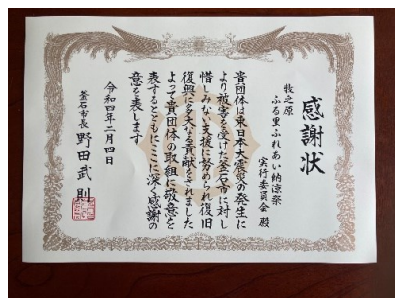 感謝状
牧之原
ふる里ふれあい納涼祭
実行委員会 殿
貴団体は東日本大震災の発生に
より被害を受けた釜石市に対し
惜しみない支援に努められ復旧
復興に多大なる貢献をされました
よって貴団体の取組に敬意を
表するとともにここに深く感謝の
意を表します
令和四年二月四日
釜石市長 野田武則